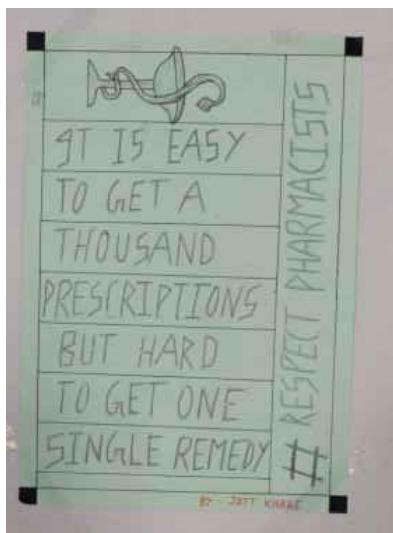 IT IS EASY
TO GET A
THOUSAND
PRESCRIPTIONS
BUT HARD
TO GET ONE
SINGLE REMEDY
# RESPECT PHARMACISTS
BY - JATT